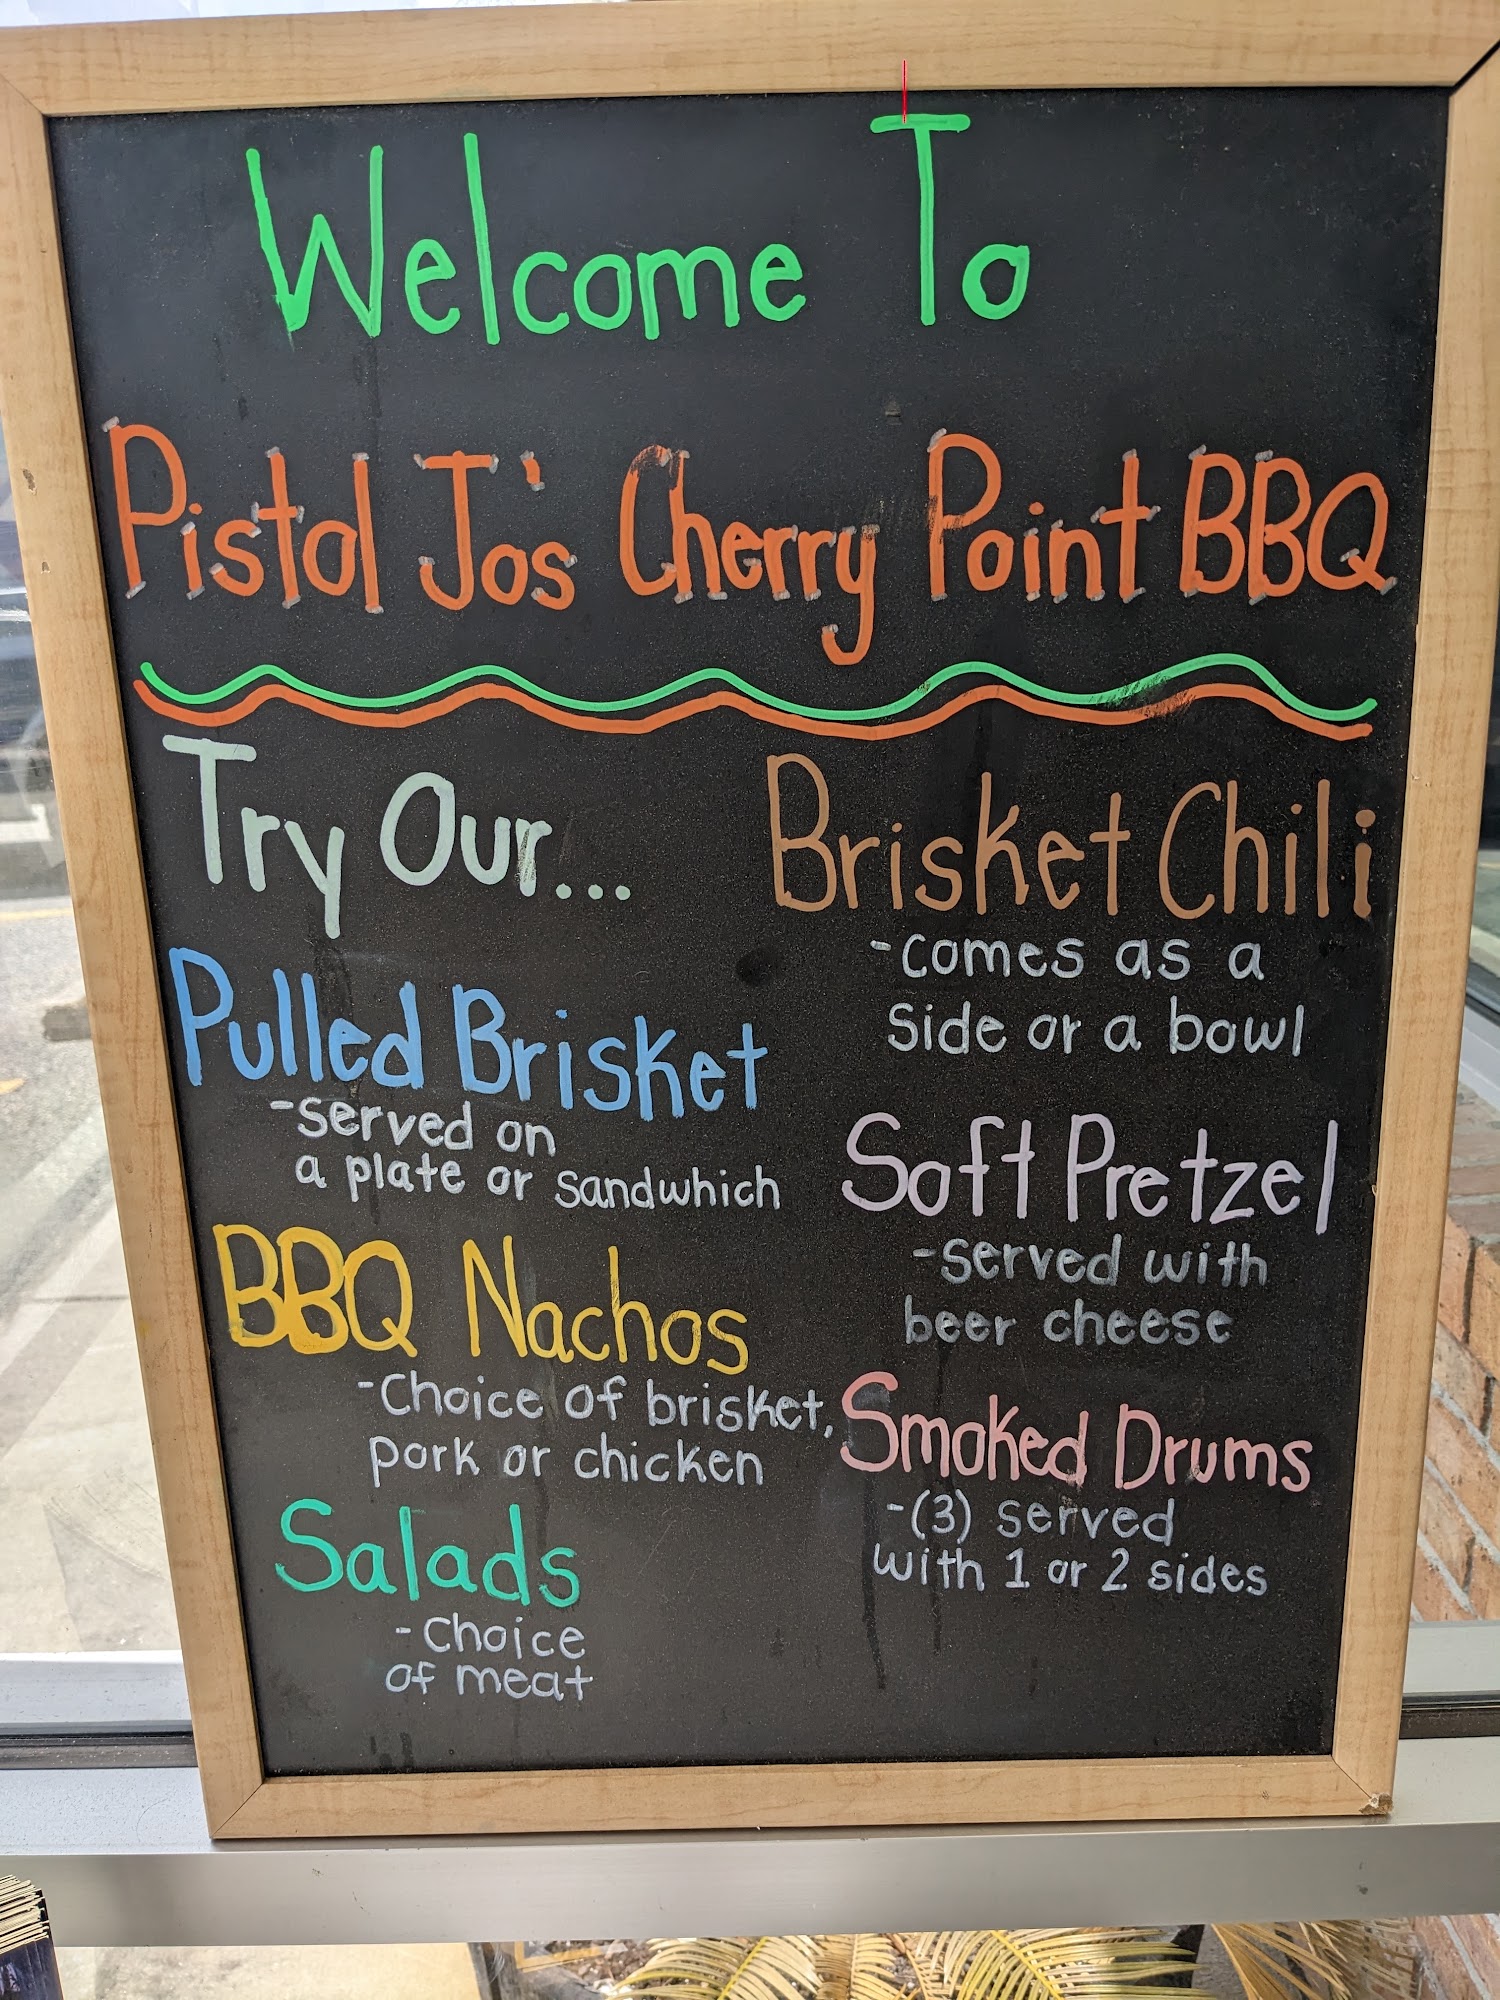 Welcome To
Pistol Jo's Cherry Point BBQ
Try Our...
Pulled Brisket
-served on
a plate or sandwhich
BBQ Nachos
-Choice of brisket,
pork or chicken
Salads
-Choice
of meat
Brisket Chili
-comes as a
side or a bowl
Soft Pretzel
-served with
beer cheese
Smoked Drums
-(3) served
with 1 or 2 sides